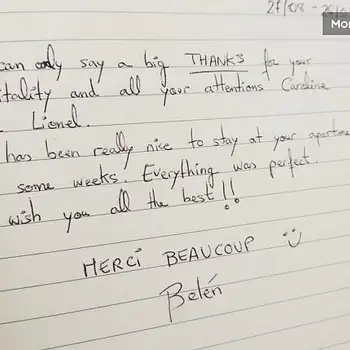 27/08 -
Mo
can only say a big THANKS for your
itality and all your attentions Caroline
Lionel.
has been really nice to stay at your apartme
some weeks. Everything was perfect.
wish you all the best!!
MERCI BEAUCOUP :)
Belén